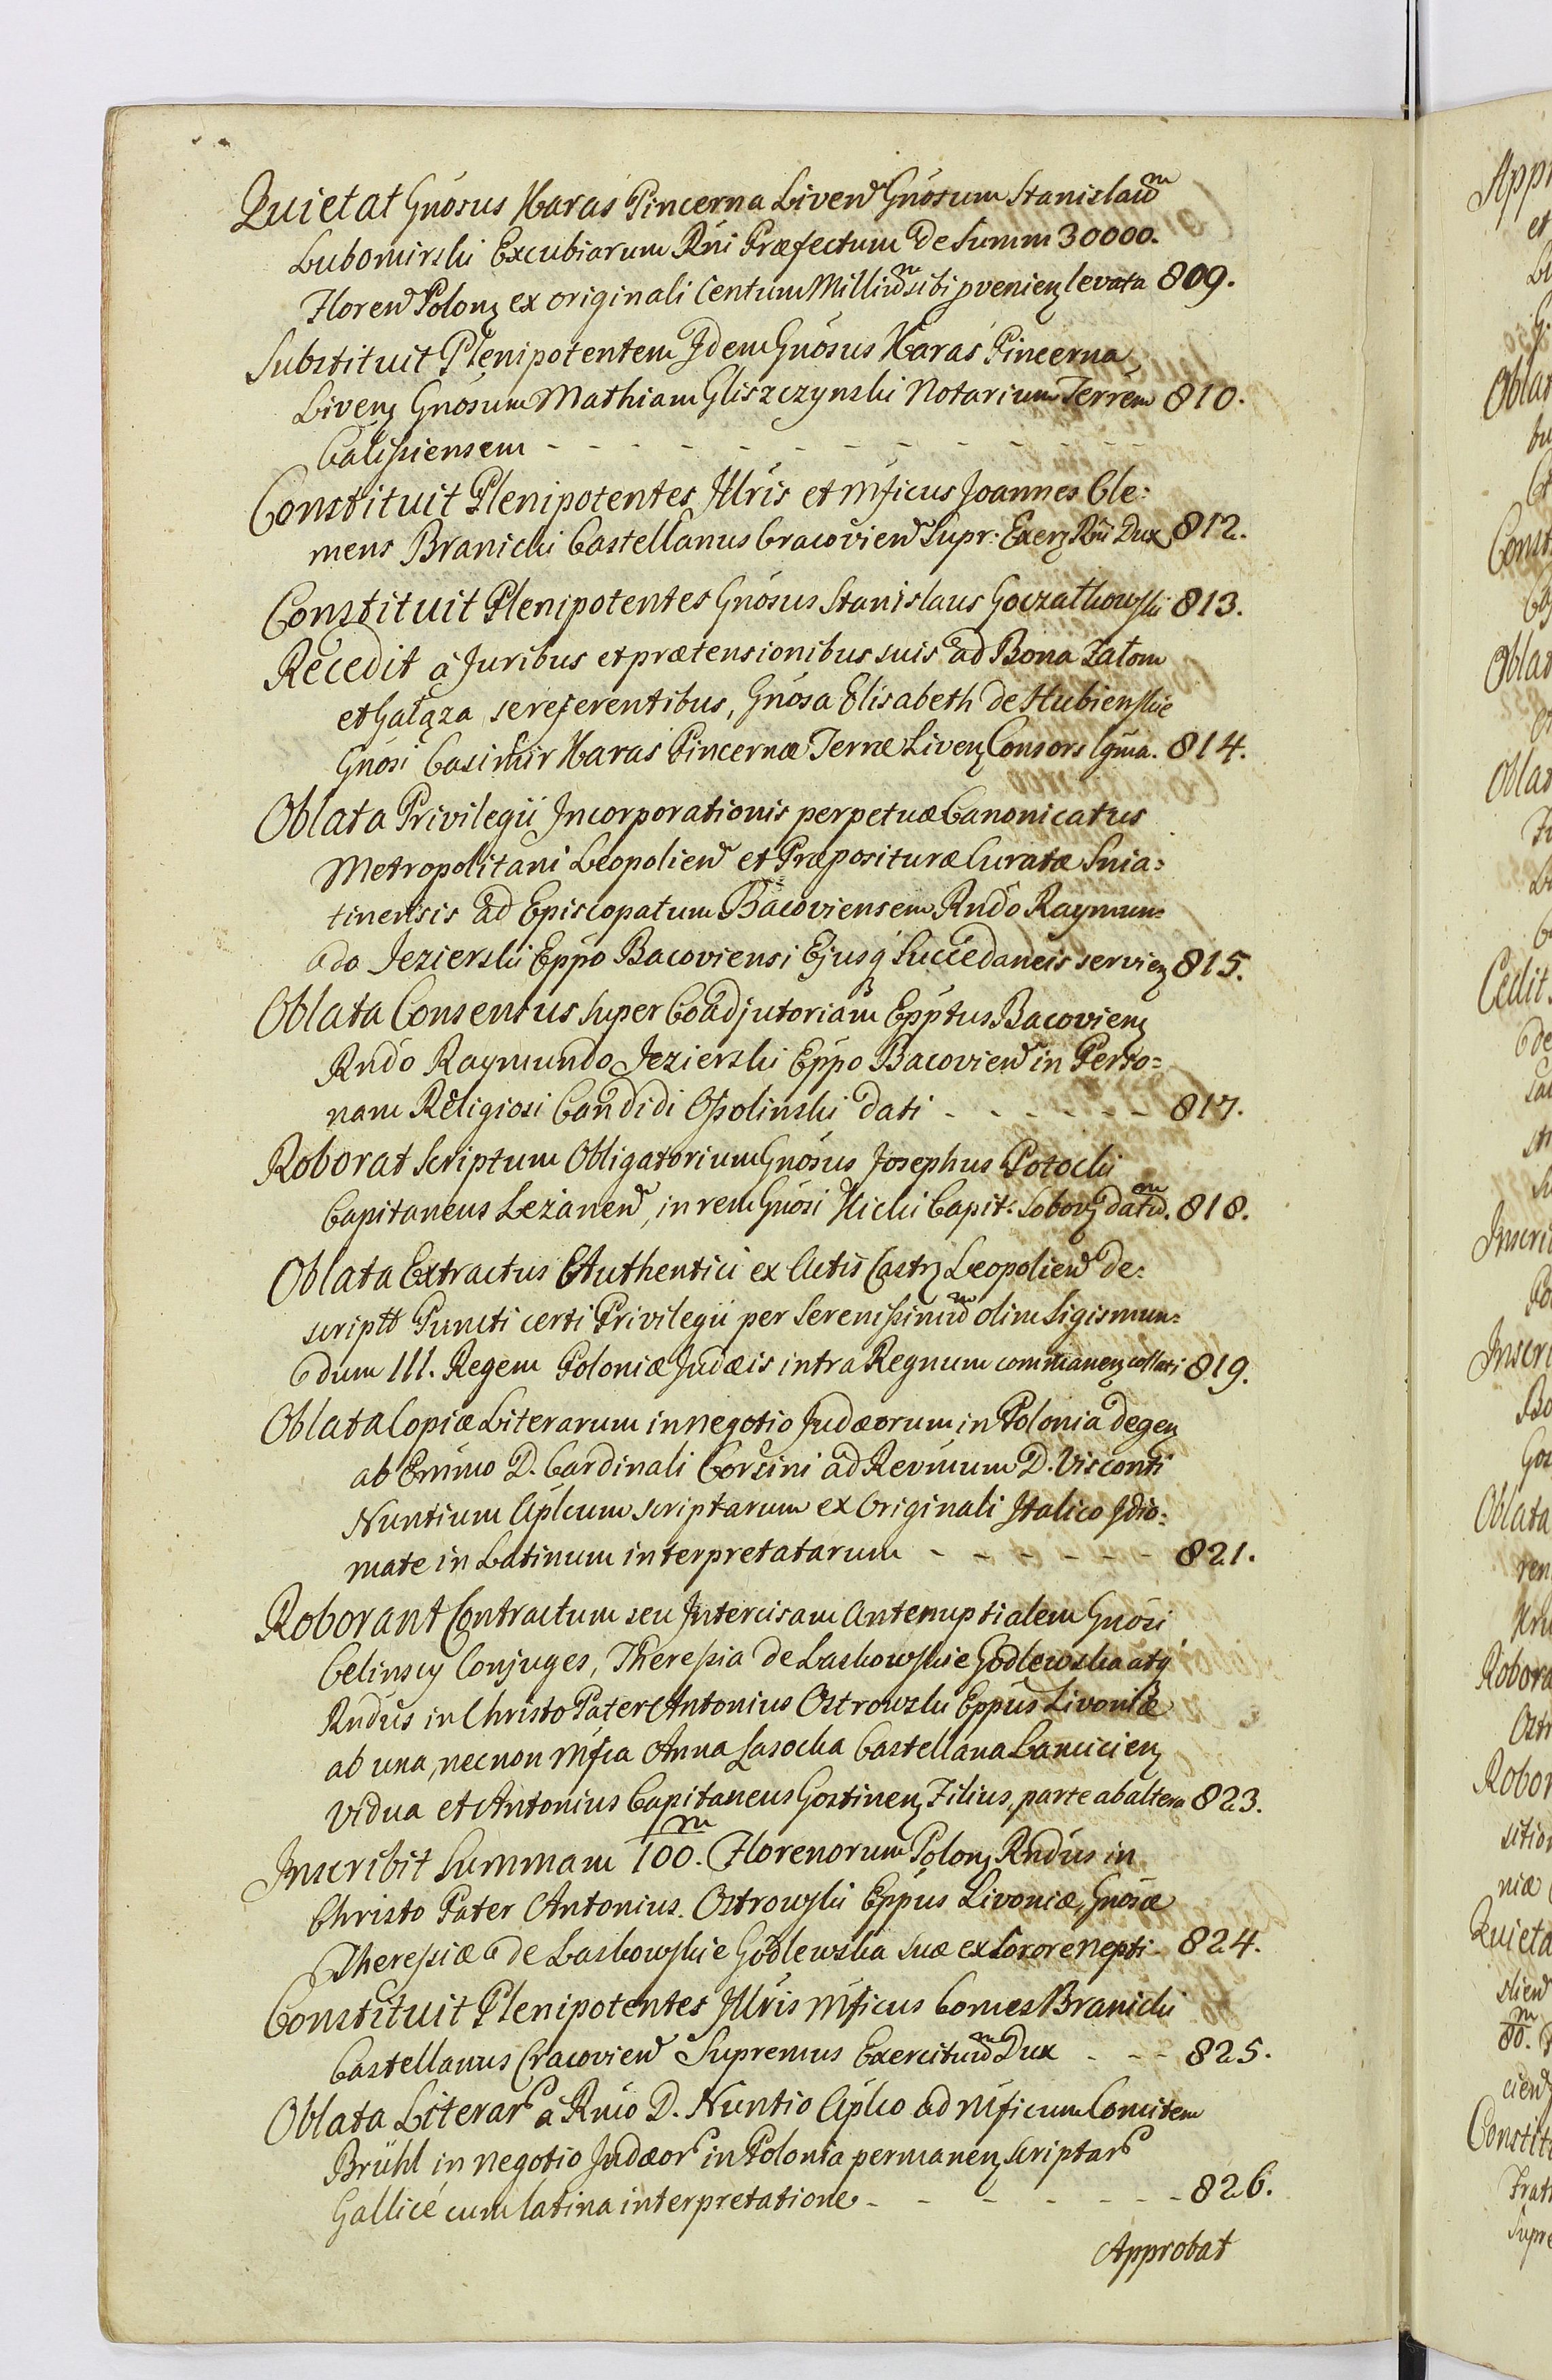 Quietat Gnosus Karas Pincerna Liven Gnosum Stanislaum
Lubomirski Excubiarum Rni Præfectum de Summ 30000.
Floren Polonz ex originali Centum Millium sibi pvenienz levata 809.
Substituit Plenipotentem Idem Gnosus Karas Pincerna
Livenz Gnosum Mathiam Gliszczynski Notarium Terrem 810.
Calissiensem - - - - - - - - - - -
Constituit Plenipotentes Illris et Mficus Joannes Cle:
mens Branicki Castellanus Cracovien Supr: Exerz Rni Dux 812.
Constituit Plenipotentes Gnosus Stanislaus Goczałkowski 813.
Recedit à Juribus et prætensionibus suis ad Bona Zatom
et Gałąza se referentibus, Gnosa Elisabeth de Hubienskie
Gnosi Casimir Karas Pincernæ Terræ Livenz Consors lgma. 814.
Oblata Privilegii Incorporationis perpetuæ Canonicatus
Metropolitani Leopolien et Præposituræ Curatæ Snia:
tinensis ad Episcopatum Bacoviensem Rndo Raymun:
do Jezierski Eppo Bacoviensi Ejusq Succedaneis servienz 815.
Oblata Consensus super Coadjutoriam Epptus Bacovienz
Rndo Raymundo Jezierski Eppo Bacovien in Perso:
nam Religiosi Candidi Ossolinski dati - - - - - - 817.
Roborat Scriptum Obligatorium Gnosus Josephus Potocki
Capitaneus Leżanen, in rem Gnosi Kicki Capit: Soborz datum. 818.
Oblata Extractus Authentici ex Actis Castrz Leopolien de:
scriptt Puncti certi Privilegii per Serenissimum olim Sigismun:
dum III. Regem Poloniæ Judæis intra Regnum commanenz collati 819.
Oblata Copiæ Literarum in negotio Judæorum in Polonia degenz
ab Emimo D. Cardinali Corsini ad Revmum D. Visconti
Nuntium Aplcum scriptarum ex Originali Italico Idio:
mate in Latinum interpretatarum - - - - - - 821.
Roborant Contractum seu Intercisam Antenuptialem Gnosi
Celinscy Conjuges, Theressia de Laskowskie Godlewska atq
Rndus in Christo Pater Antonius Ostrowski Eppus Livoniæ
ab una, necnon Mfca Anna Lasocka Castellana Lancicienz
Vidua et Antonius Capitaneus Gostinenz Filius, parte ab altera 823.
Inscribit Summam 100.m Florenorum Polonz Rndus in
Christo Pater Antonius Ostrowski Eppus Livoniæ, Gnosæ
Theressiæ de Laskowskie Godlewska suæ ex Sorore nepti 824.
Constituit Plenipotentes Illris Mficus Comes Branicki
Castellanus Cracovien Supremus Exercituum Dux - - - 825.
Oblata Literar à Rmo D. Nuntio Aplco ad Mficum Comitem
Brühl in negotio Judæor in Polonia permanenz scriptar
Gallicé cum latina interpretatione - - - - - - - 826.
Approbat